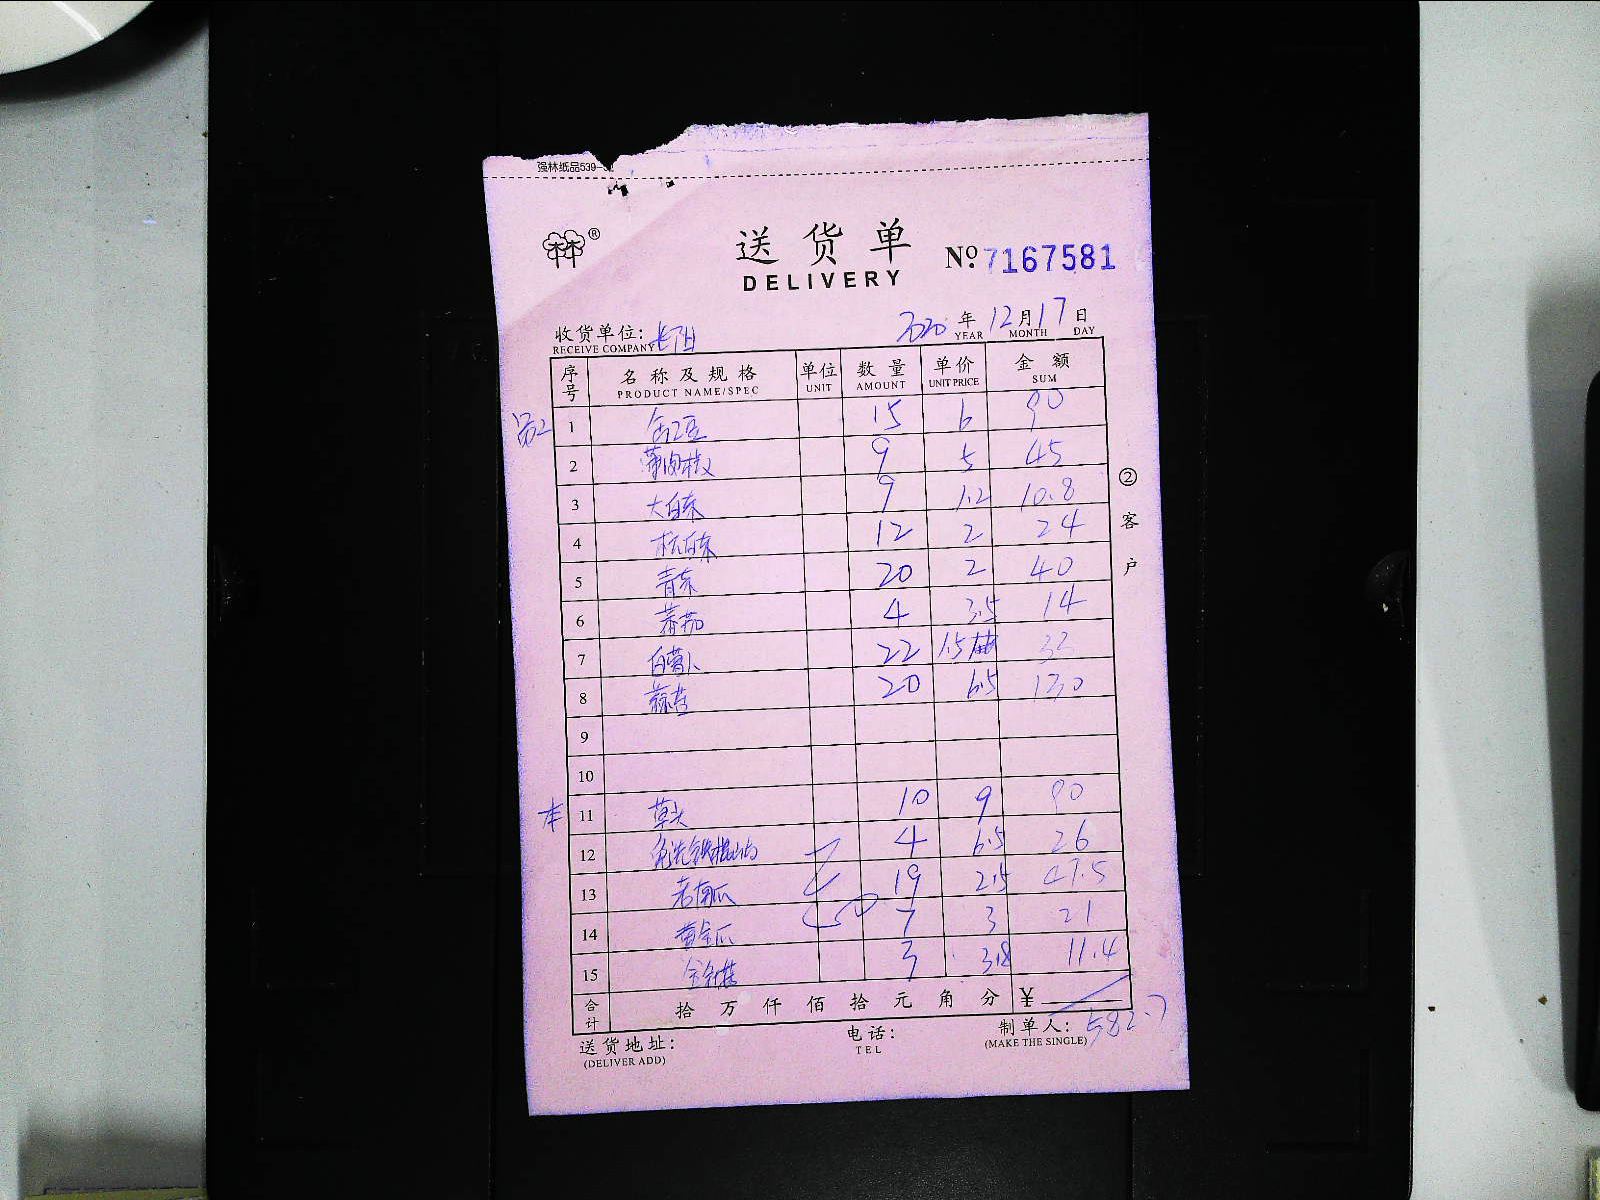 强林纸品539-
林®
送货单
DELIVERY
Nº 7167581
2020 年 12 月 17 日
YEAR MONTH DAY
收货单位:
RECEIVE COMPANY
序号 名称及规格 单位 数量 单价 金额
PRODUCT NAME/SPEC UNIT AMOUNT UNIT PRICE SUM
1 15 6 90
2 9 5 45
3 大白菜 9 1.2 10.8
4 杭白菜 12 2 24
5 青菜 20 2 40
6 蕃茄 4 3.5 14
7 白萝卜 22 1.5 33
8 蒜苗 20 6.5 130
9
10
11 草头 10 9 90
12 免洗铁棍山药 4 6.5 26
13 老南瓜 19 2.5 47.5
14 黄金瓜 7 3 21
15 金针菇 3 3.8 11.4
合计 拾 万 仟 佰 拾 元 角 分 ¥ 582.7
送货地址: 电话: 制单人:
(DELIVER ADD) TEL (MAKE THE SINGLE)
②客户